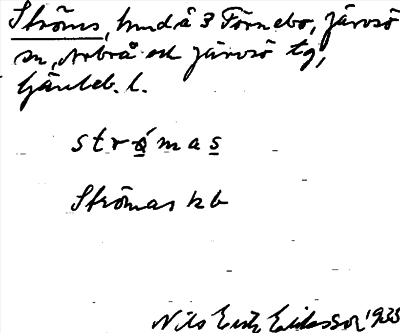 Ströms, hmd å 3 Förnebo, Järvsö
sn, Arbrå och Järvsö tg,
Gävleb. l.
strömas
Strömas kb
Nils Erik Eriksson 1935